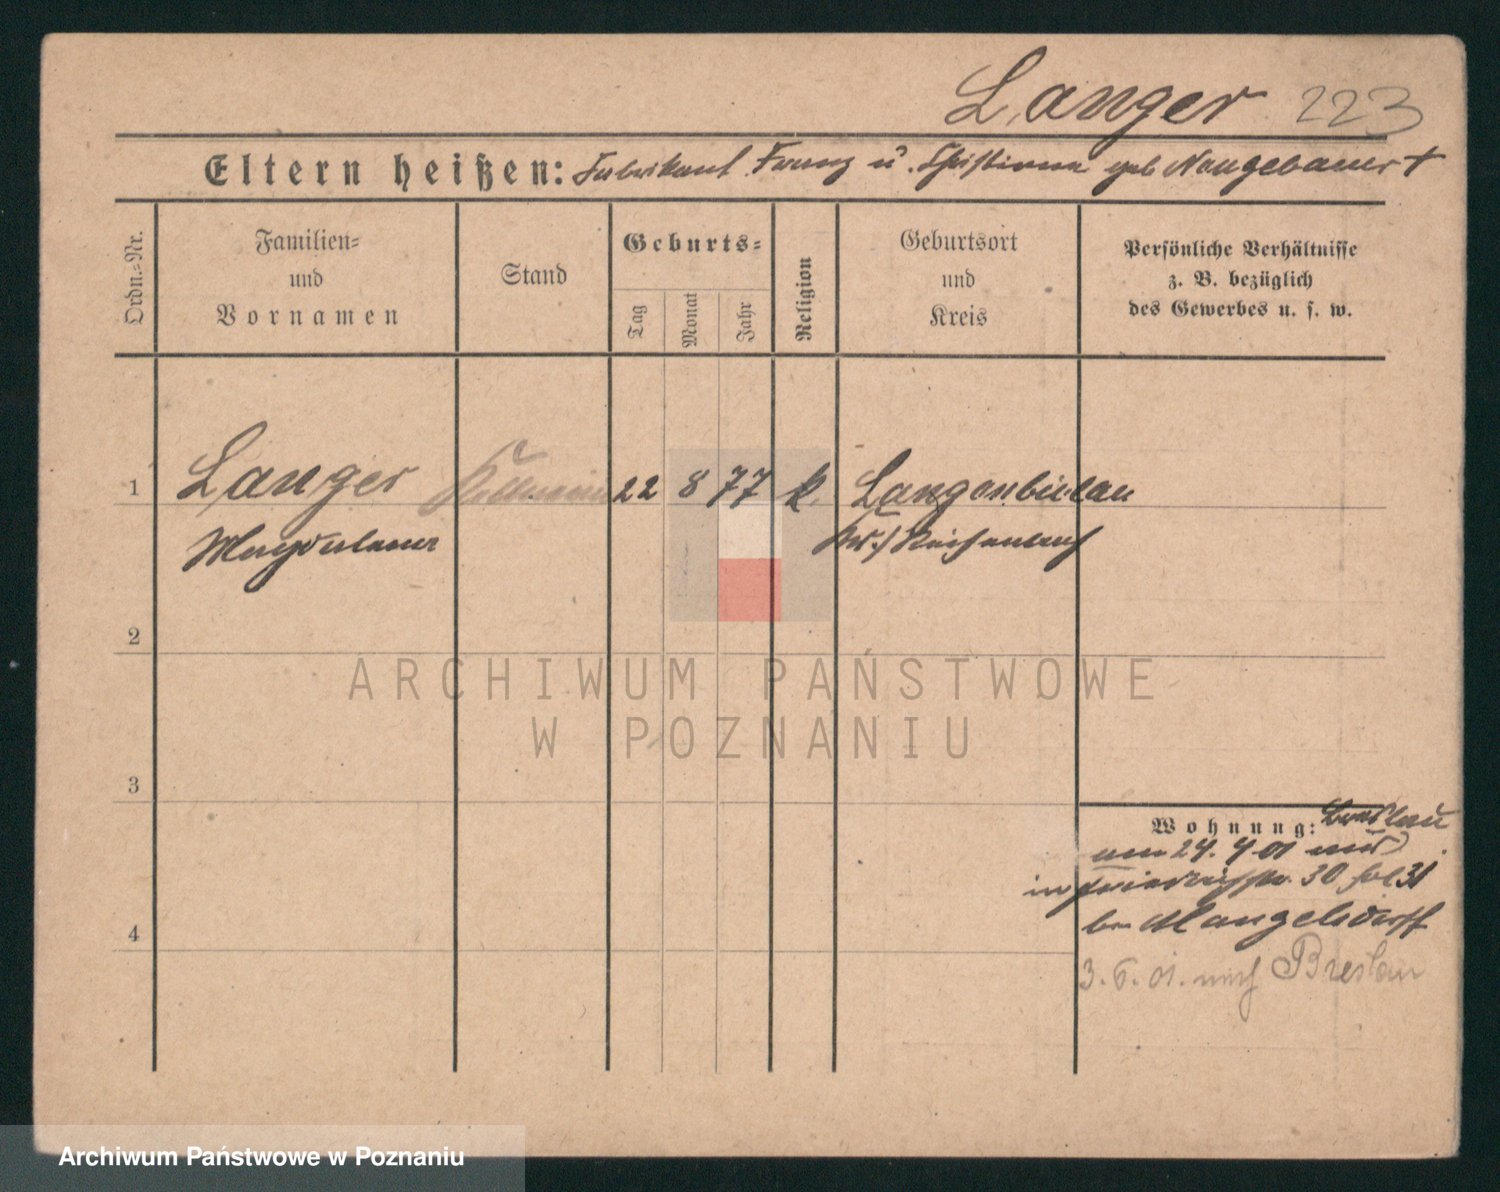 Langer 223
Eltern heißen: Fabrikant Franz u. Christiana geb Neugebauer †
Ordn.-Nr.
Familien-
und
Vornamen
Stand
Geburts-
Tag
Monat
Jahr
Religion
Geburtsort
und
Kreis
Persönliche Verhältnisse
z. B. bezüglich
des Gewerbes u. s. w.
1 Langer Kellnerin 22 8 77 k. Langenbielau
Magdalena Kr. Reichenbach
2
3
4
Wohnung: Breslau
am 24. 4 01
in Friedrichstr. 30 31
bei Mangelsdorff
3. 6. 01. nach Breslau
ARCHIWUM PAŃSTWOWE
W POZNANIU
Archiwum Państwowe w Poznaniu